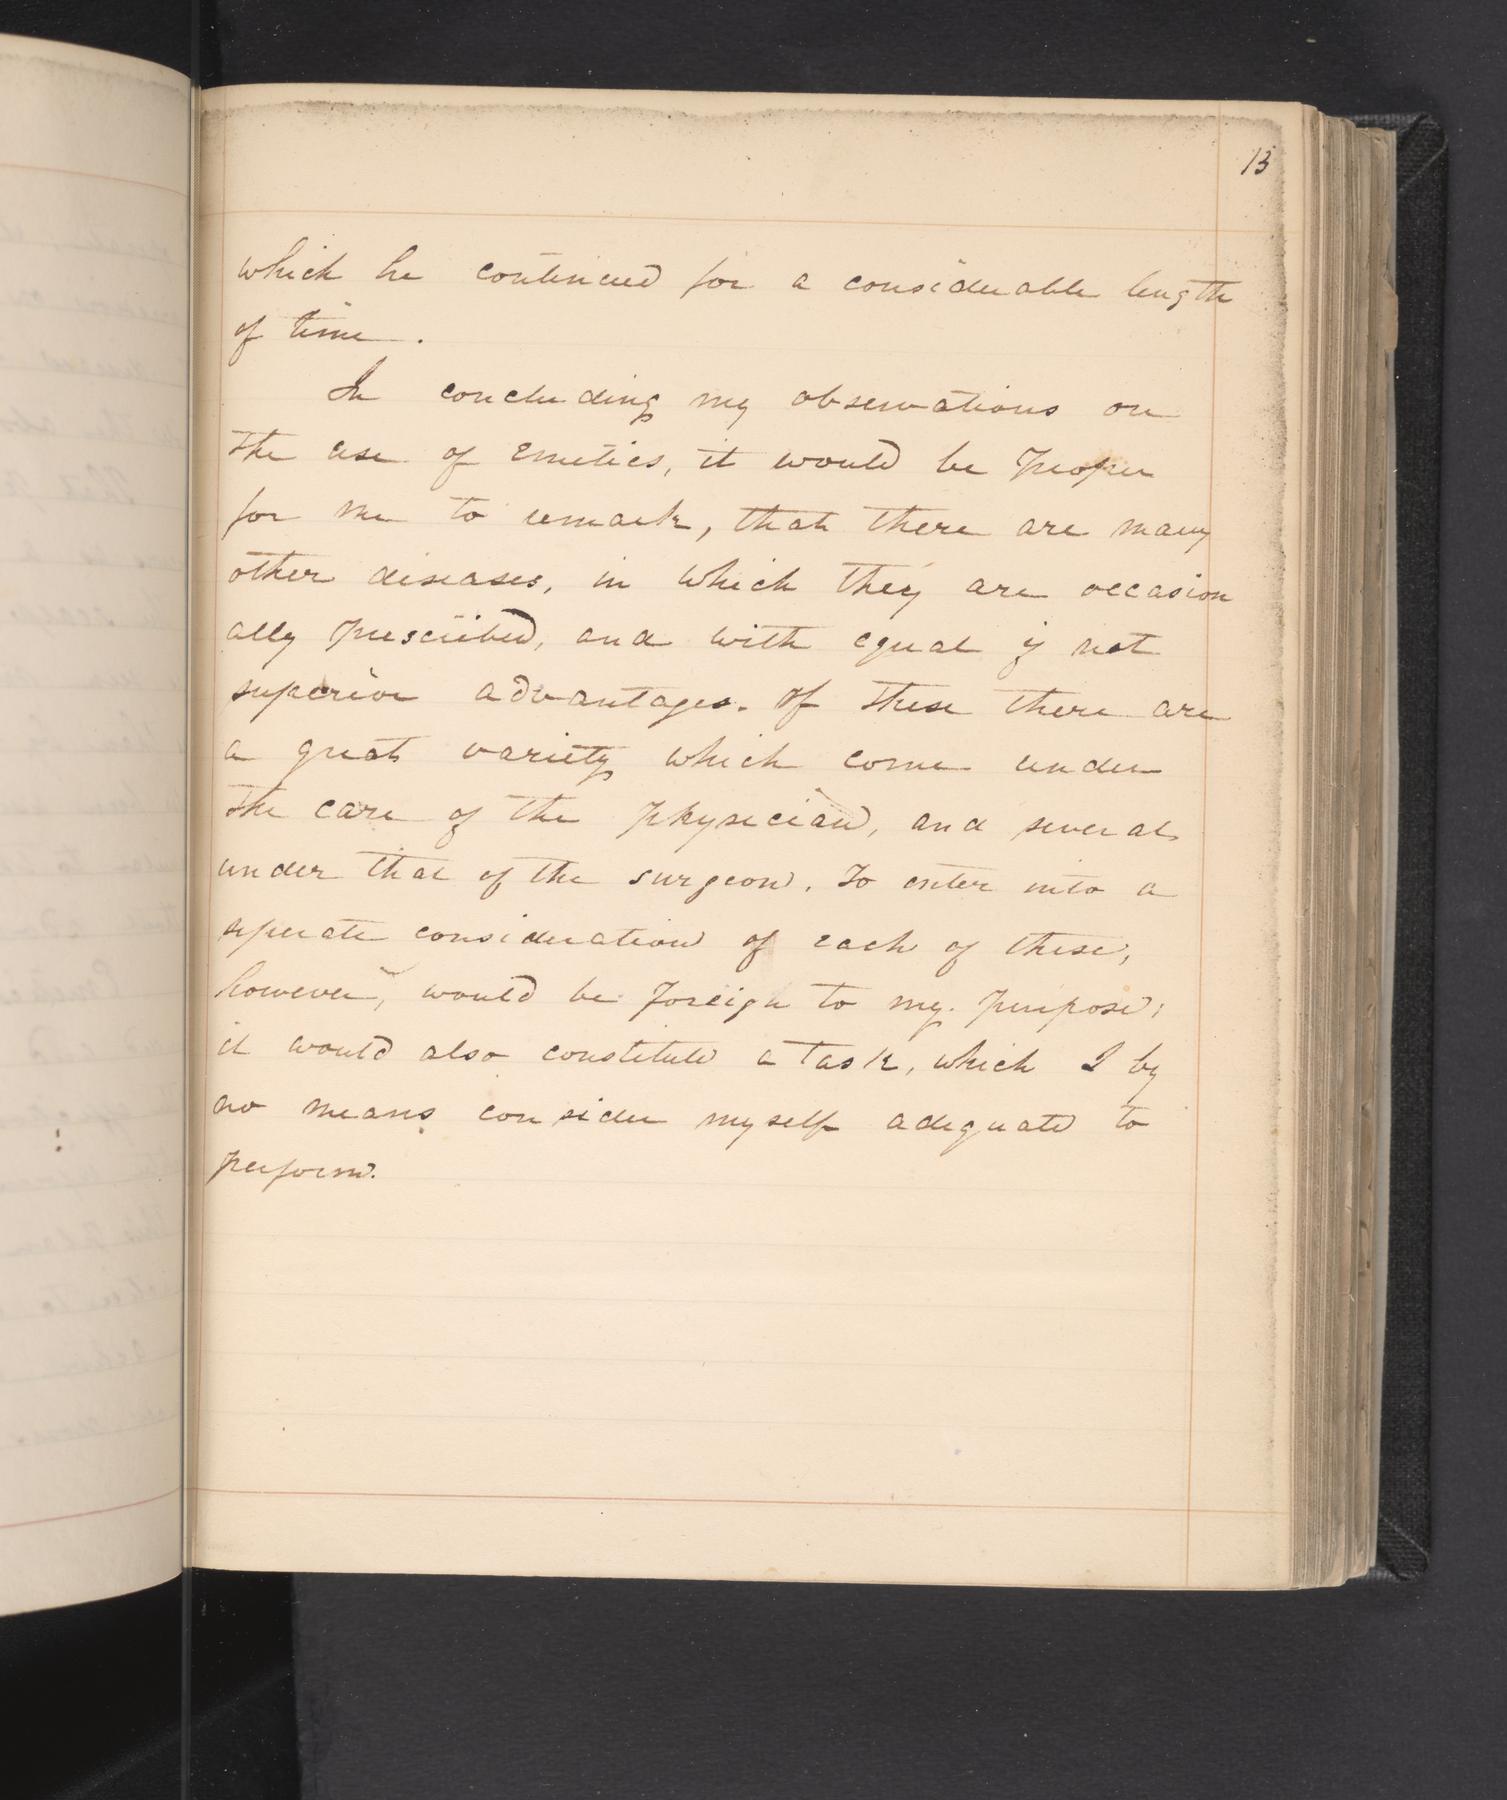 13
which he continued for a considerable length
of time.
In concluding my observations on
the use of Emetics, it would be proper
for me to remark, that there are many
other diseases, in which they are occasion
ally prescribed, and with equal if not
superior advantages. Of these there are
a great variety which come under
the care of the physician, and several
under that of the surgeon. To enter into a
seperate consideration of each of these,
however, would be foreign to my purpose;
it would also constitute a task, which I by
no means consider myself adequate to
perform.